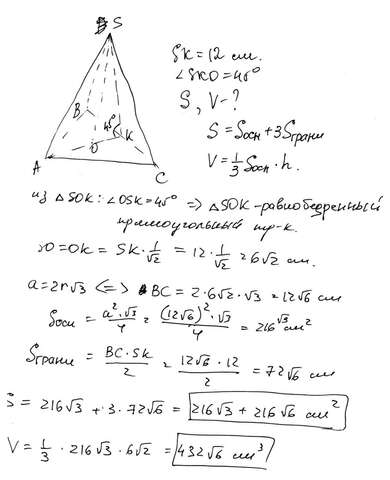 S
B
45°
O
K
A
C
SK = 12 см.
∠SKO = 45°
S, V - ?
S = Sосн + 3Sграни
V = 1/3 Sосн · h.
из △SOK: ∠OSK = 45° => △SOK - равнобедренный
прямоугольный тр-к.
SO = OK = SK · 1/√2 = 12 · 1/√2 = 6√2 см.
a = 2r√3 <=> BC = 2 · 6√2 · √3 = 12√6 см
Sосн = a² · √3/4 = (12√6)² · √3/4 = 216√3 см²
Sграни = BC · SK/2 = 12√6 · 12/2 = 72√6 см
S = 216√3 + 3 · 72√6 = 216√3 + 216√6 см²
V = 1/3 · 216√3 · 6√2 = 432√6 см³